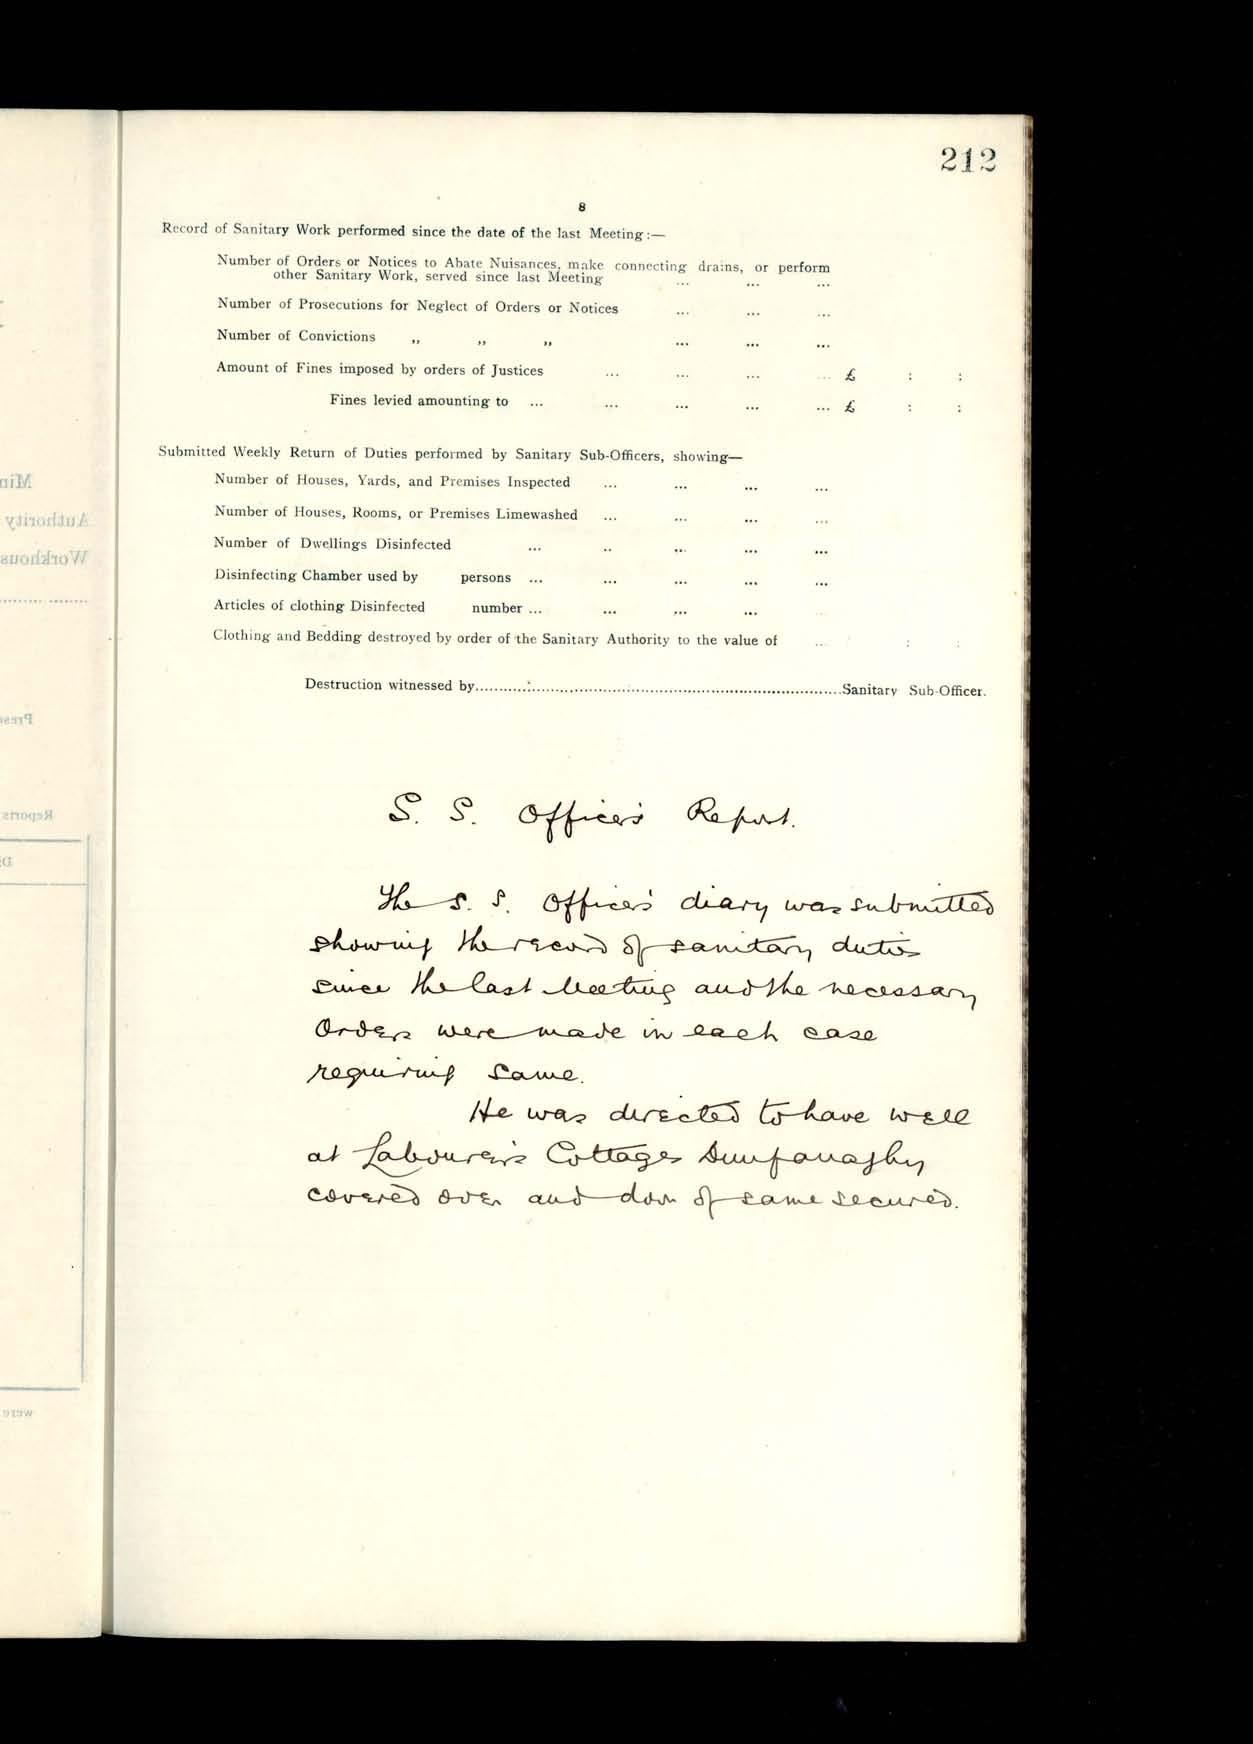 212
8
Record of Sanitary Work performed since the date of the last Meeting:—
Number of Orders or Notices to Abate Nuisances, make connecting drains, or perform
other Sanitary Work, served since last Meeting ... ... ...
Number of Prosecutions for Neglect of Orders or Notices ... ... ...
Number of Convictions „ „ „ ... ... ...
Amount of Fines imposed by orders of Justices ... ... ... ... £ : :
Fines levied amounting to ... ... ... ... ... £ : :
Submitted Weekly Return of Duties performed by Sanitary Sub-Officers, showing—
Number of Houses, Yards, and Premises Inspected ... ... ... ...
Number of Houses, Rooms, or Premises Limewashed ... ... ... ...
Number of Dwellings Disinfected ... .. ... ... ...
Disinfecting Chamber used by persons ... ... ... ... ...
Articles of clothing Disinfected number ... ... ... ...
Clothing and Bedding destroyed by order of the Sanitary Authority to the value of ... : :
Destruction witnessed by..............................Sanitary Sub-Officer.
S. S. Officer's Report.
The S. S. Officer's diary was submitted
showing the record of sanitary duties
since the last Meeting and the necessary
Orders were made in each case
requiring same.
He was directed to have well
at Labourer's Cottages Dunfanaghy
covered over and door of same secured.
Min
Authority
Workhous
Prese
Reports
D
were